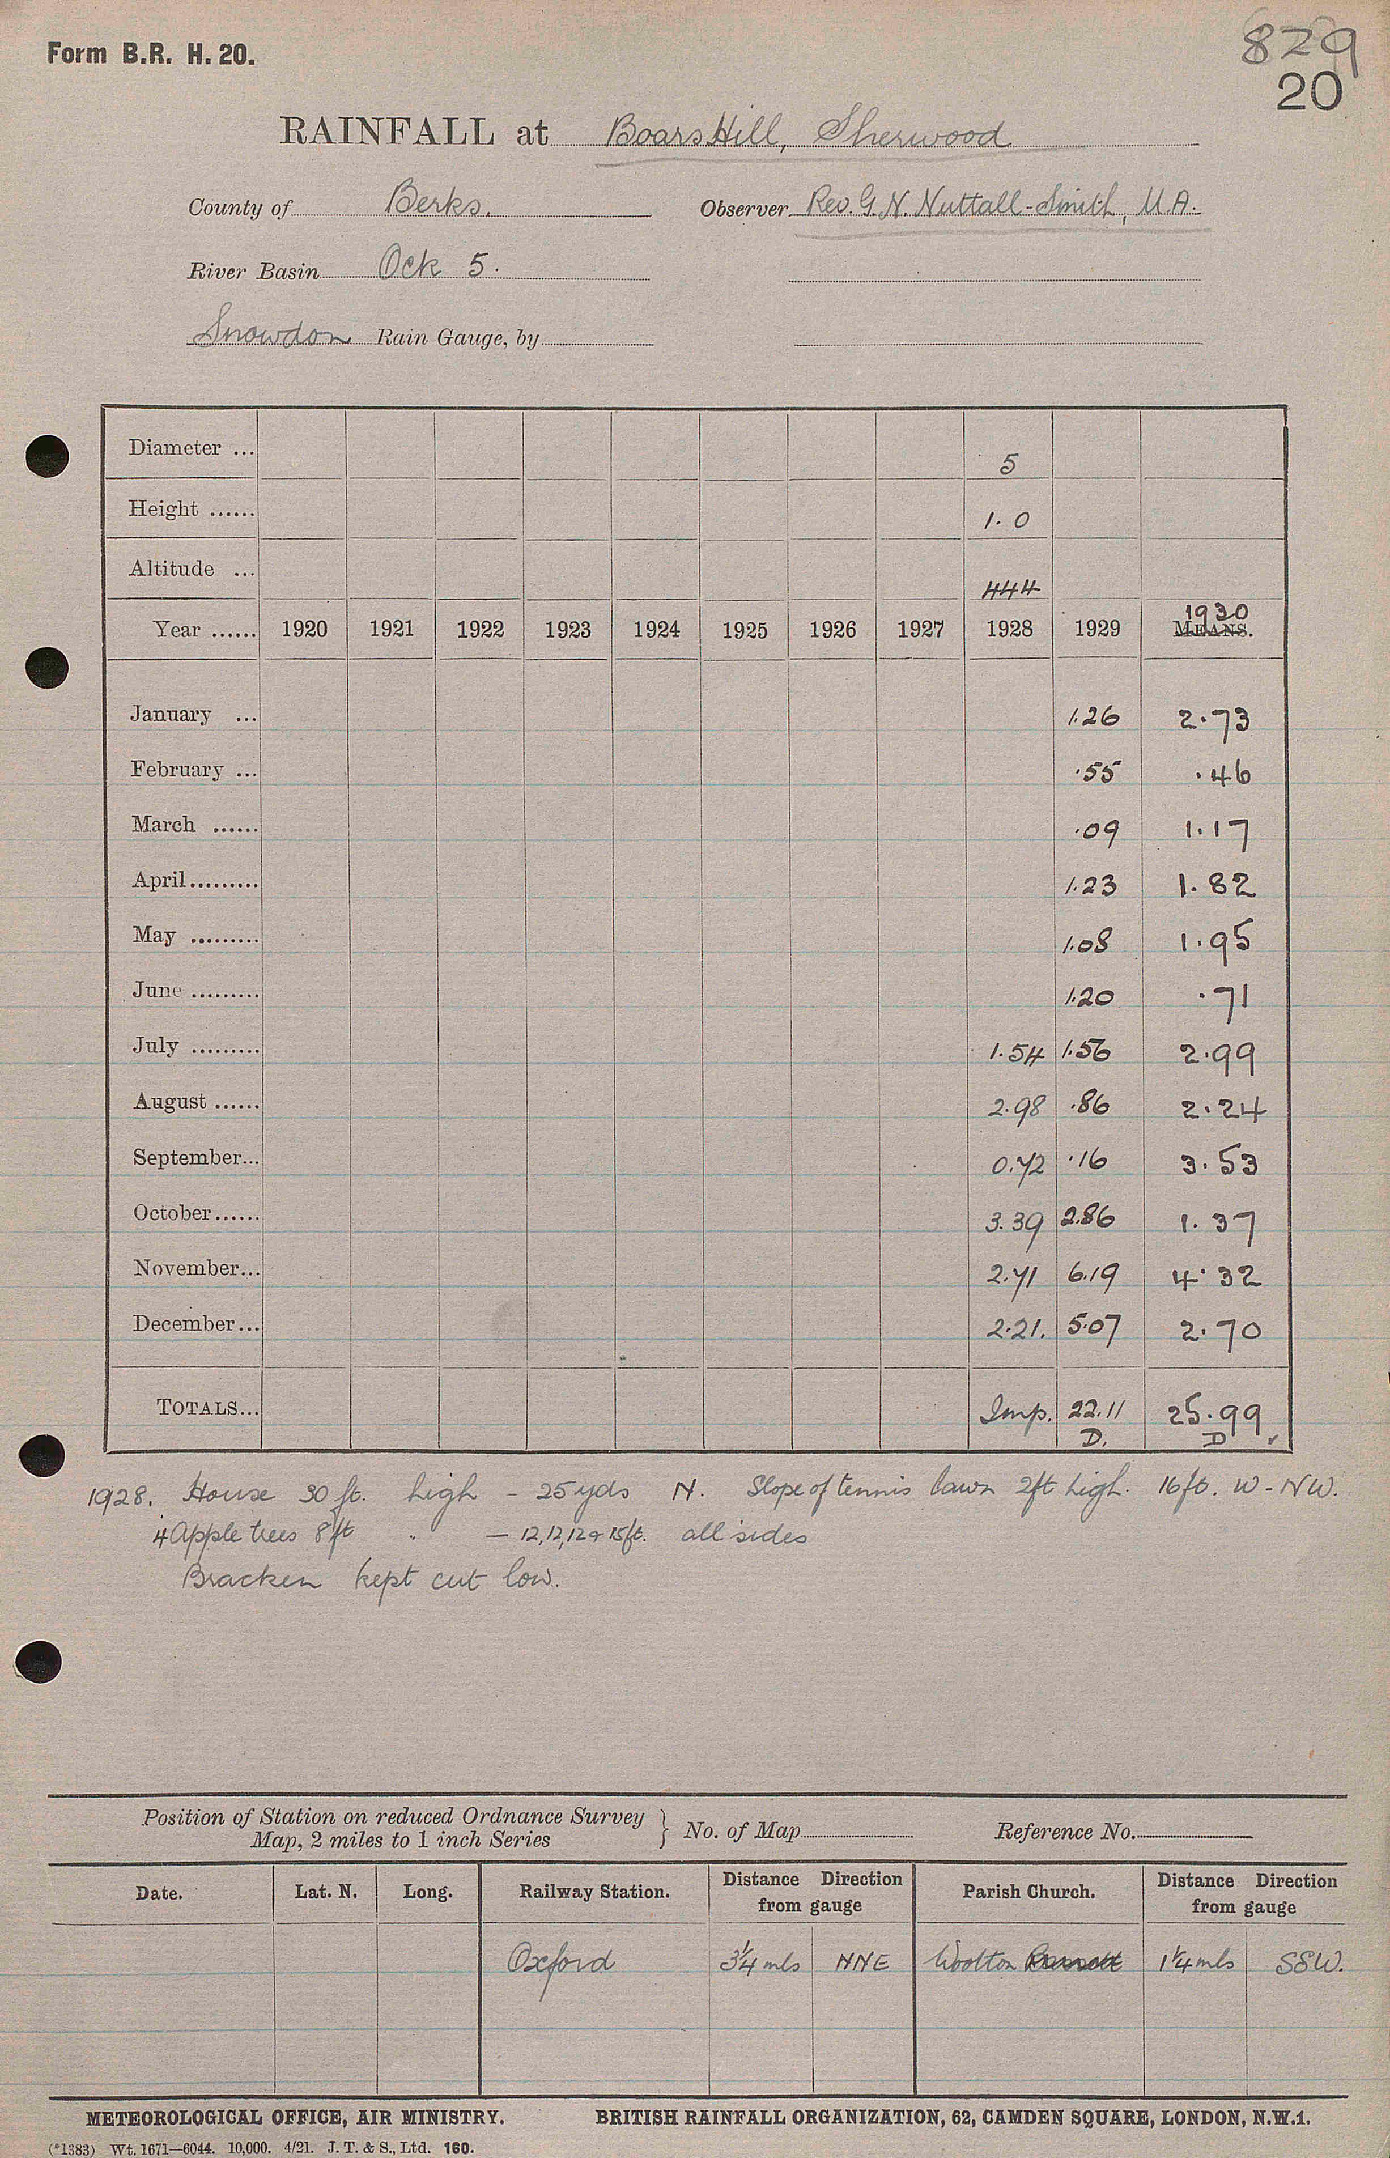 Form B.R. H. 20.
829
20
RAINFALL at Boars Hill, Sherwood
County of Berks. Observer Rev. G. N. Nuttall-Smith, M.A.
River Basin Ock 5.
Snowdon Rain Gauge, by
Diameter ... 5
Height ...... 1.0
Altitude ... 444
1930
Year ...... 1920 1921 1922 1923 1924 1925 1926 1927 1928 1929 MEANS.
January ... 1.26 2.73
February ... .55 .46
March ...... .09 1.17
April ......... 1.23 1.82
May ......... 1.08 1.95
June ......... 1.20 .71
July ......... 1.54 1.56 2.99
August ...... 2.98 .86 2.24
September... 0.72 .16 3.53
October...... 3.39 2.86 1.37
November... 2.71 6.19 4.32
December... 2.21. 5.07 2.70
TOTALS... Imp. 22.11 25.99
D. D
1928. House 30 ft. high - 25 yds N. Slope of tennis lawn 2ft high. 16ft. W - NW.
4 Apple trees 8ft " — 12, 12, 12 & 15ft. all sides
Bracken kept cut low.
Position of Station on reduced Ordnance Survey
Map, 2 miles to 1 inch Series } No. of Map Reference No.
Date. Lat. N. Long. Railway Station. Distance Direction from gauge Parish Church. Distance Direction from gauge
Oxford 3¼ mls NNE Wootton 1¼ mls SSW.
METEOROLOGICAL OFFICE, AIR MINISTRY. BRITISH RAINFALL ORGANIZATION, 62, CAMDEN SQUARE, LONDON, N.W.1.
(*1383) Wt. 1671—6044. 10,000. 4/21. J. T. & S., Ltd. 160.